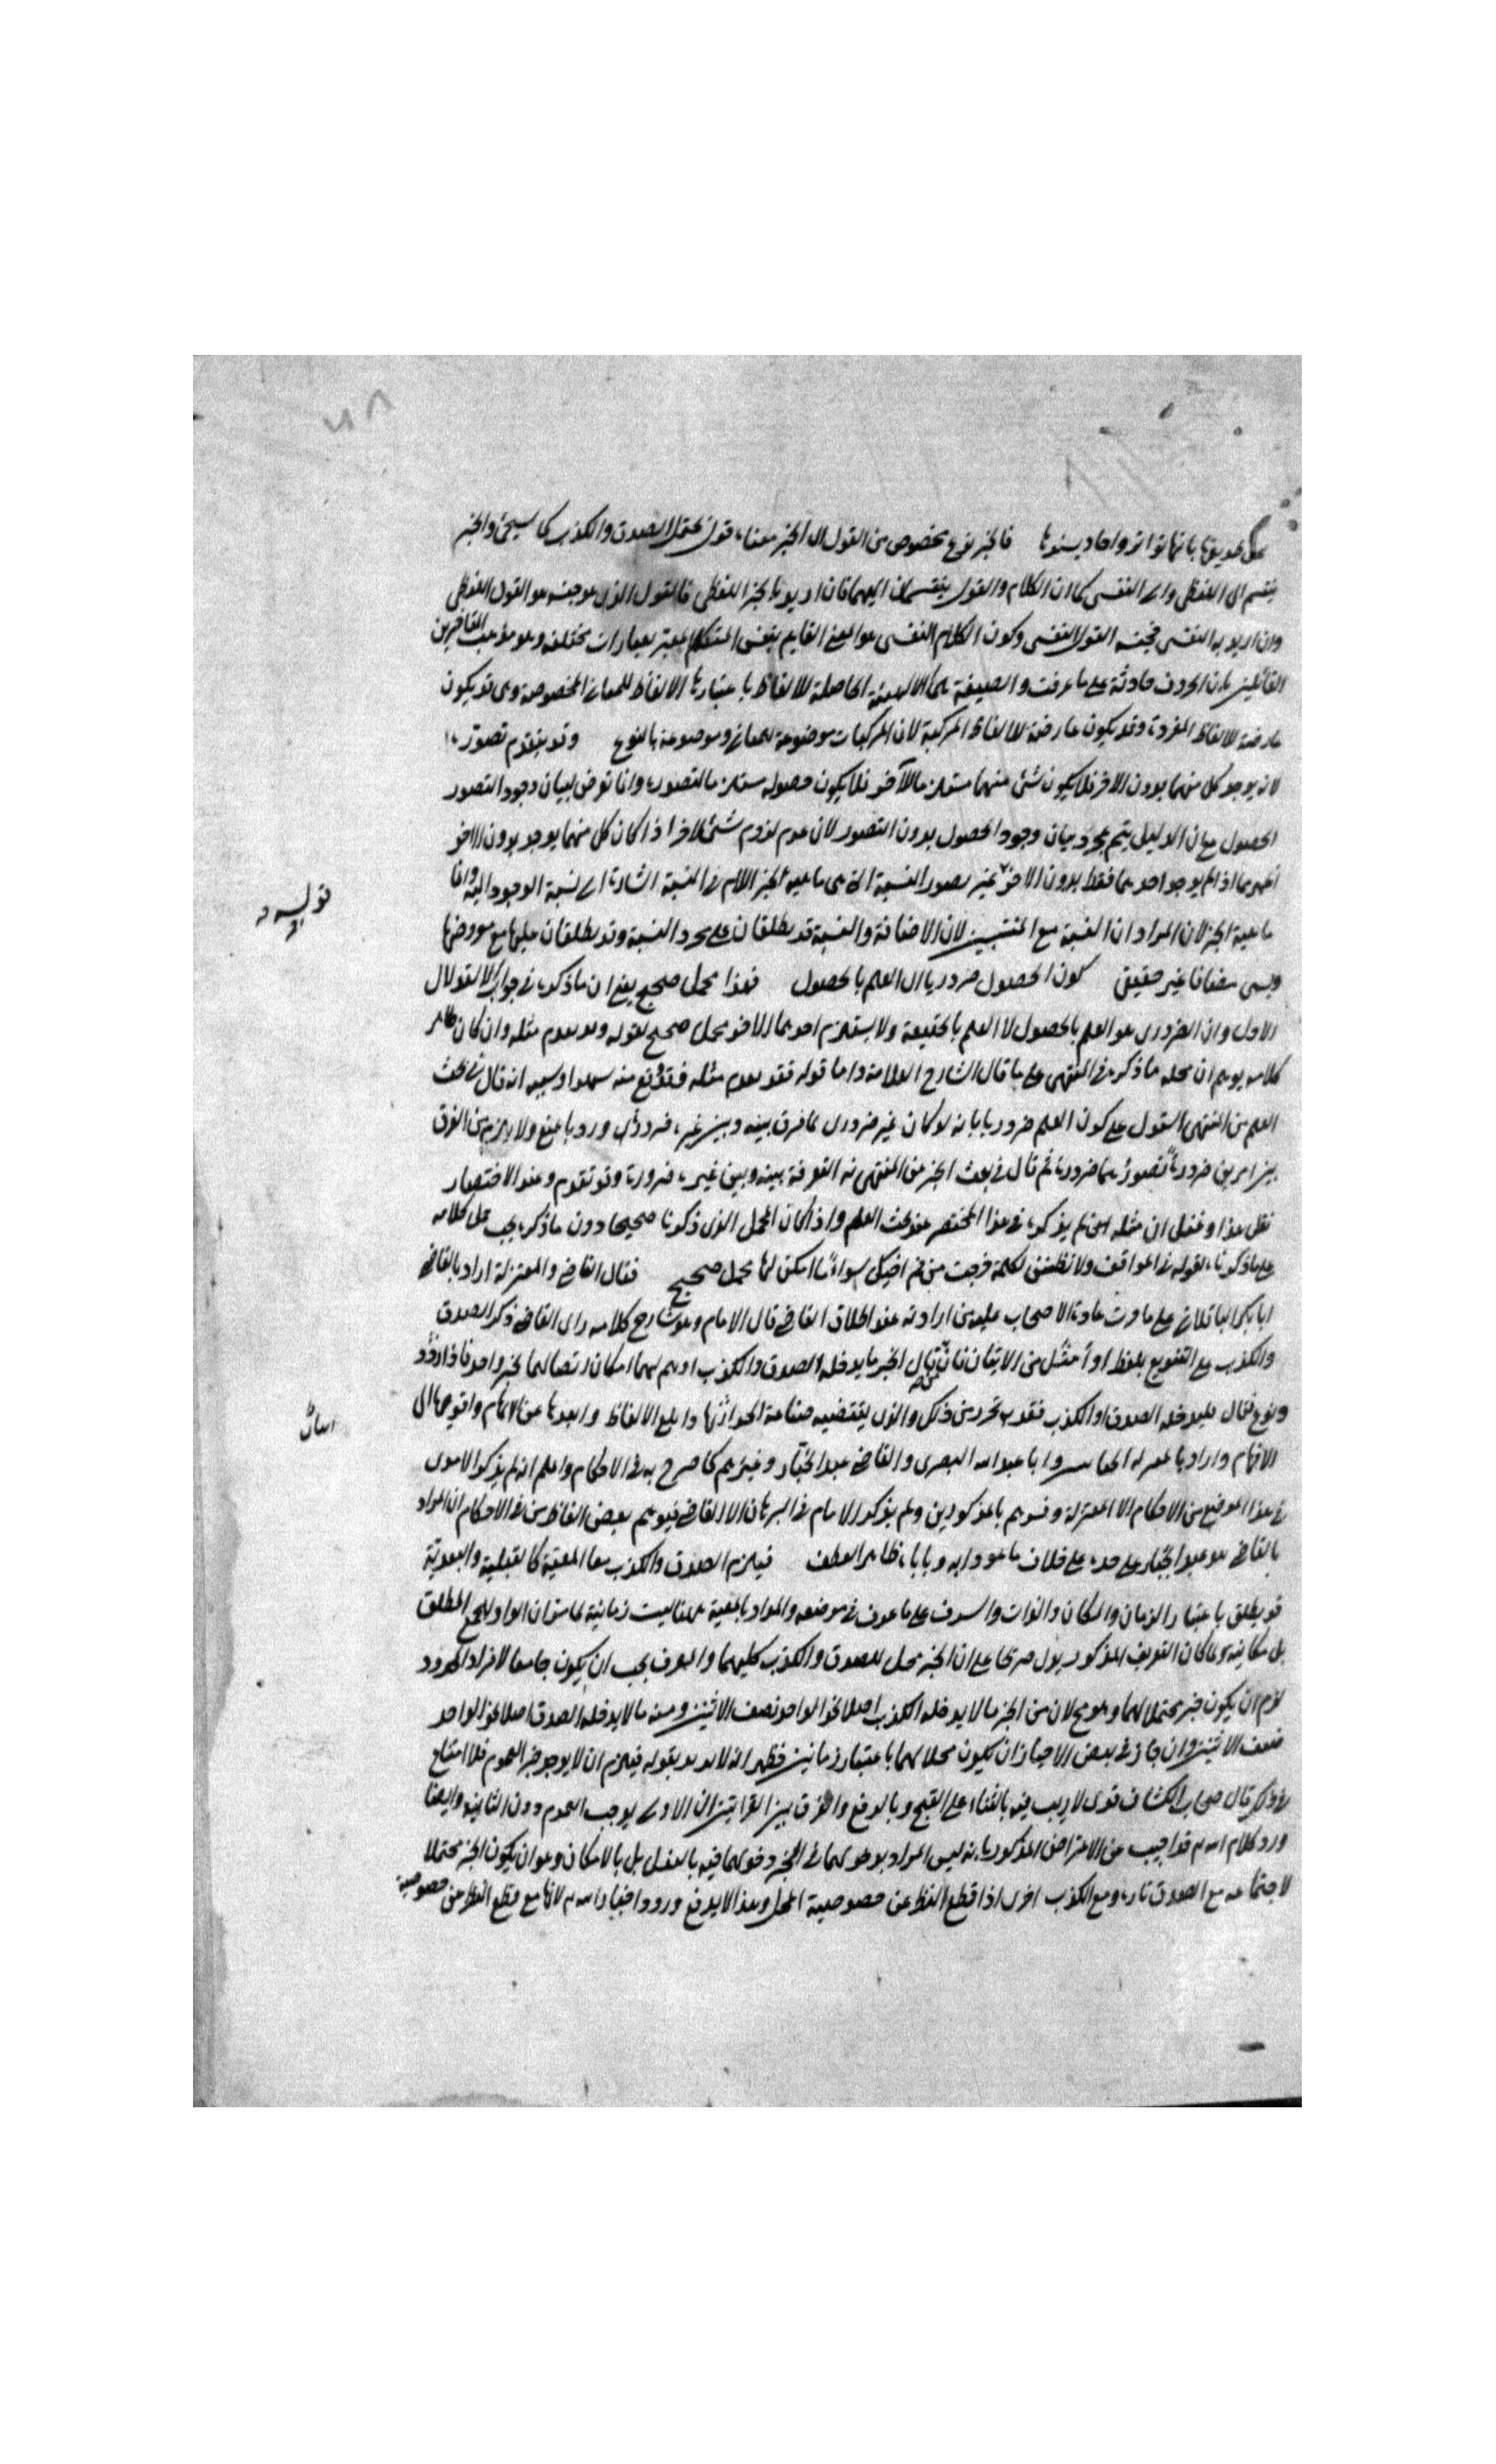 على طريقها بانها تواتر واحاد بسندها فالخبر نوع مخصوص من القول لان الخبر معناه قول يحتمل الصدق والكذب كما سيجئ والخبر
ينقسم الى اللفظى والى النفسى كما ان الكلام والقول ينقسمان اليهما فان اريد بالخبر اللفظى فالقول الذى هو جنسه هو القول اللفظى
وان اريد به النفسى فجنسه القول النفسى وكون الكلام النفسى هو المعنى القايم بنفس المتكلم المعبر بعبارات مختلفة وهو مذهب المتاخرين
القائلين بان الحروف حادثة على ما عرفت والصيغة هى الهيئة الحاصلة للالفاظ باعتبارها الالفاظ للمعانى المخصوصة وهى قد يكون
عارضة للالفاظ المفردة وقد يكون عارضة للالفاظ المركبة لان المركبات موضوعة لمعانى وموضوعة بالنوع وقد يتقدم تصوره
لانه يوجد كل منهما بدون الاخر فلا يكون شئ منهما مستلزما للآخر فلا يكون حصوله مستلزما لتصوره وانما تعرض لبيان وجود التصور
الحصول مع ان الدليل يتم بمجرد بيان وجود الحصول بدون التصور لان عدم لزوم شئ لاخر اذا كان كل منهما يوجد بدون الاخر
اظهر مما اذا لم يوجد احدهما فقط بدون الاخر غير تصور النسبة التى هى ماهية الخبر اللام فى النسبة اشارة الى نسبة الوجود اليه وانما
ماهية الخبر لان المراد ان النسبة مع المنتسبين لان الاضافة والنسبة قد يطلقان على مجرد النسبة وقد يطلقان عليها مع معروضها
ويسمى مضافا غير حقيقى كون الحصول ضروريا اى العلم بالحصول فهذا محمل صحيح يعنى ان ما ذكره فى جواب الاستدلال
الاول وان الضرورى هو العلم بالحصول لا العلم بالحقيقة ولا يستلزم احدهما الاخر محمل صحيح لقوله وقد تقدم مثله وان كان ظاهر
كلامه يوهم ان محله ما ذكره فى المنتهى على ما قال الشارح العلامة واما قوله فقد تقدم مثله فتوقع منه سهوا وسببه انه قال فى بحث
العلم من المنتهى القول على كون العلم ضروريا بانه لو كان غير ضرورى لما فرق بينه وبين غيره ضرورة ورد بالمنع ولا يلزم من الفرق
بين امرين ضرورة تصورهما ضرورة ثم قال فى بحث الخبر من المنتهى انه التفرقة بينه وبين غيره ضرورة وقد تقدم وعند الاختصار
نقل هذا وغفل ان مثله لم يذكره فى هذا المختصر عند بحث العلم واذا كان المحمل الذى ذكرنا صحيحا دون ما ذكره يجب حمل كلامه
على ما ذكرناه لقوله فى المواقف ولا تظنن لكلمة خرجت من فم اخيك سوءا ما امكن لها محمل صحيح فقال القاضى والمعتزلة اراد بالقاضى
ابا بكر الباقلانى على ما جرت عادة الاصحاب عليه من ارادته عند اطلاق القاضى قال الامام وهو شارح كلامه راى القاضى ذكر الصدق
والكذب على التنويع بلفظ او أمثل من الاتيان فان من قال الخبر ما يدخله الصدق والكذب اوهم لهما امكان اتصالهما بخبر واحد فاذا ردد
ونوع فقال ما يدخله الصدق او الكذب فقد تحرز من ذلك والذى يقتضيه صناعة الحد اثنها وابلغ الالفاظ وابعدها عن الابهام واقربها الى
الافهام واراد بالمعتزلة الجبائى وابا عبد الله البصرى والقاضى عبد الجبار وغيرهم كما صرح به فى الاحكام واعلم انه لم يذكر الامدى
فى هذا الموضع من الاحكام الا المعتزلة وفسرهم بالمذكورين ولم يذكر الامام فى البرهان الا القاضى فيوهم بعض الفاظ من فى الاحكام ان المراد
بالقاضى هو عبد الجبار على حده على خلاف ما هو دابه ويابا ه ظاهر العطف فيلزم الصدق والكذب معا المعية كالقبلية والبعدية
قد يطلق باعتبار الزمان والمكان والذات والشرف على ما عرف فى موضعه والمراد بالمعية ههنا ليست زمانية لما سبق ان الواو للجمع المطلق
بل مكانية ولما كان التعريف المذكور يدل صريحا على ان الخبر محل للصدق والكذب كليهما والمعرف يجب ان يكون جامعا لافراد المحدود
لزم ان يكون خبر محتملا لهما وهو مح لان من الخبر ما لا يدخله الكذب اصلا نحو الواحد نصف الاثنين ومنه ما لا يدخله الصدق اصلا نحو الواحد
ضعف الاثنين وان جاز فى بعض الاخبار ان يكون محلا لهما باعتبار زمانين فظهر انه لا بد بقوله فيلزم ان لا يوجد خبر العموم فلا امتناع
فى ذلك قال صاحب الكشاف قوله لا ريب فيه بالبناء على الفتح وبالرفع والفرق بين القراءتين ان الاولى يوجب العموم دون الثانية وايضا
ورد كلام الله قد اجيب عن الاعتراض المذكور بانه ليس المراد بدخولهما فى الخبر دخولهما فيه بالفعل بل بالامكان وهو ان يكون الخبر محتملا
لاجتماعه مع الصدق تارة ومع الكذب اخرى اذا قطع النظر عن خصوصية المحل وهذا لا يدفع ورود اخبار الله لانها مع قطع النظر عن خصوصية